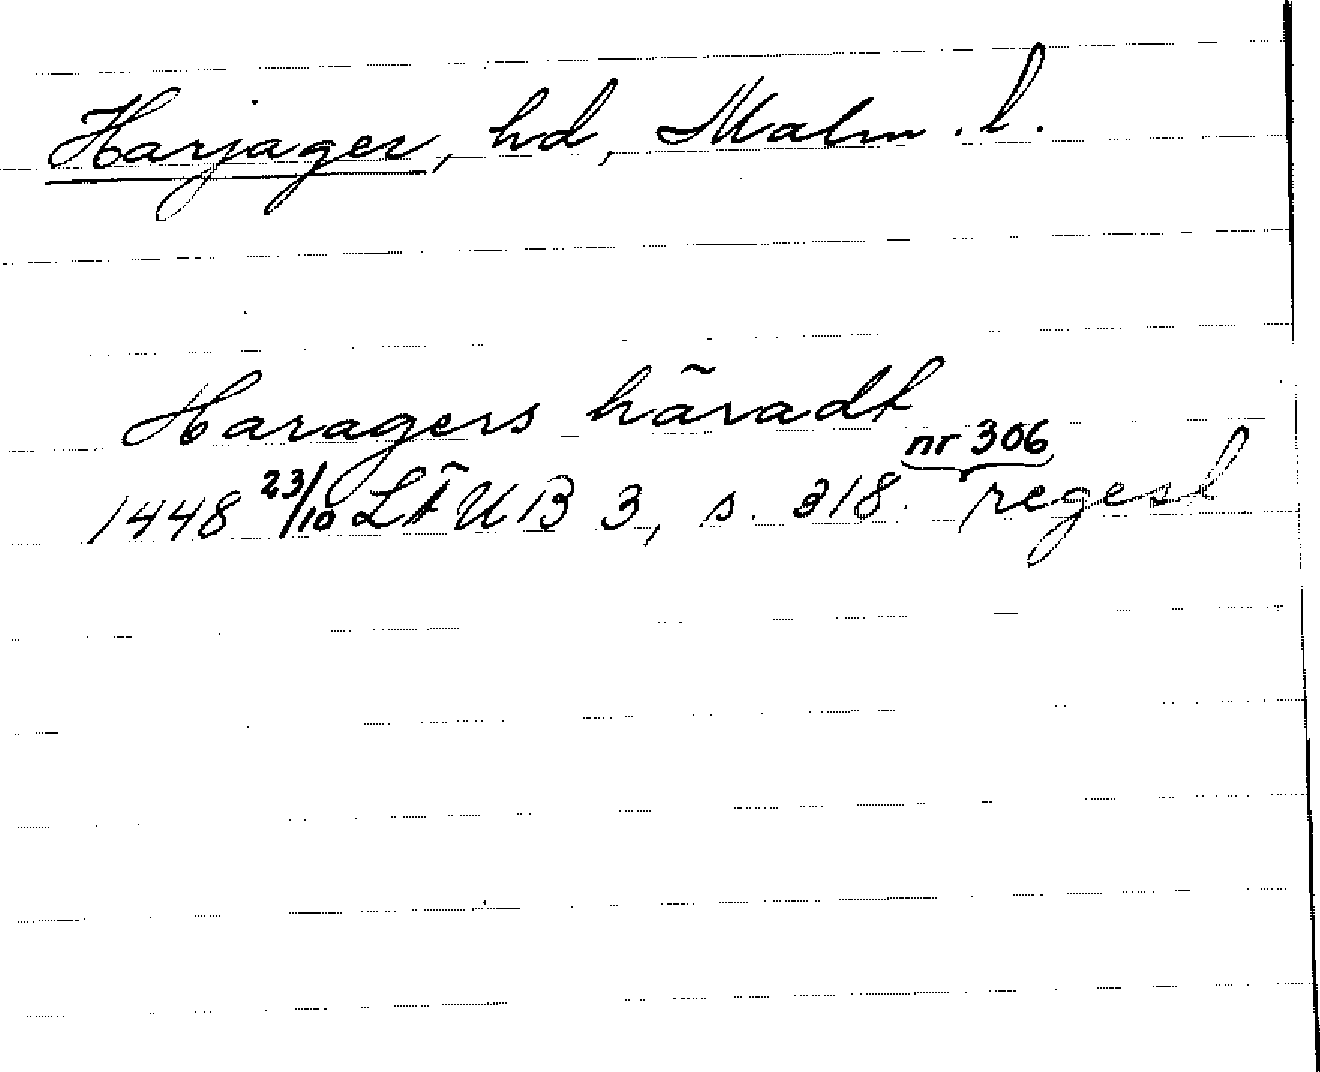 Harjager, hd, Malm. l.
Haragers häradt
1448 23/10 LÄUB 3, s. 318. nr 306 regest